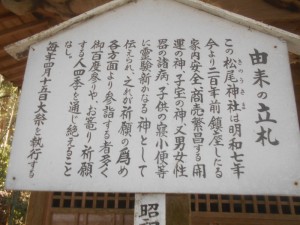 由来の立札
この松尾神社は明和七年
今より二百年前鎮座したる
家内安全、商売繁昌する開
運の神、子宝の神、又男女性
器の諸病、子供の寝小便等
に霊験新かなる神として
伝えられ、之れが祈願の為め
各方面より参詣する者多く
御百度参りや、お篭り、祈願
する人四季を通じ絶えること
なし。
毎年四月十五日大祭を執行する
昭和